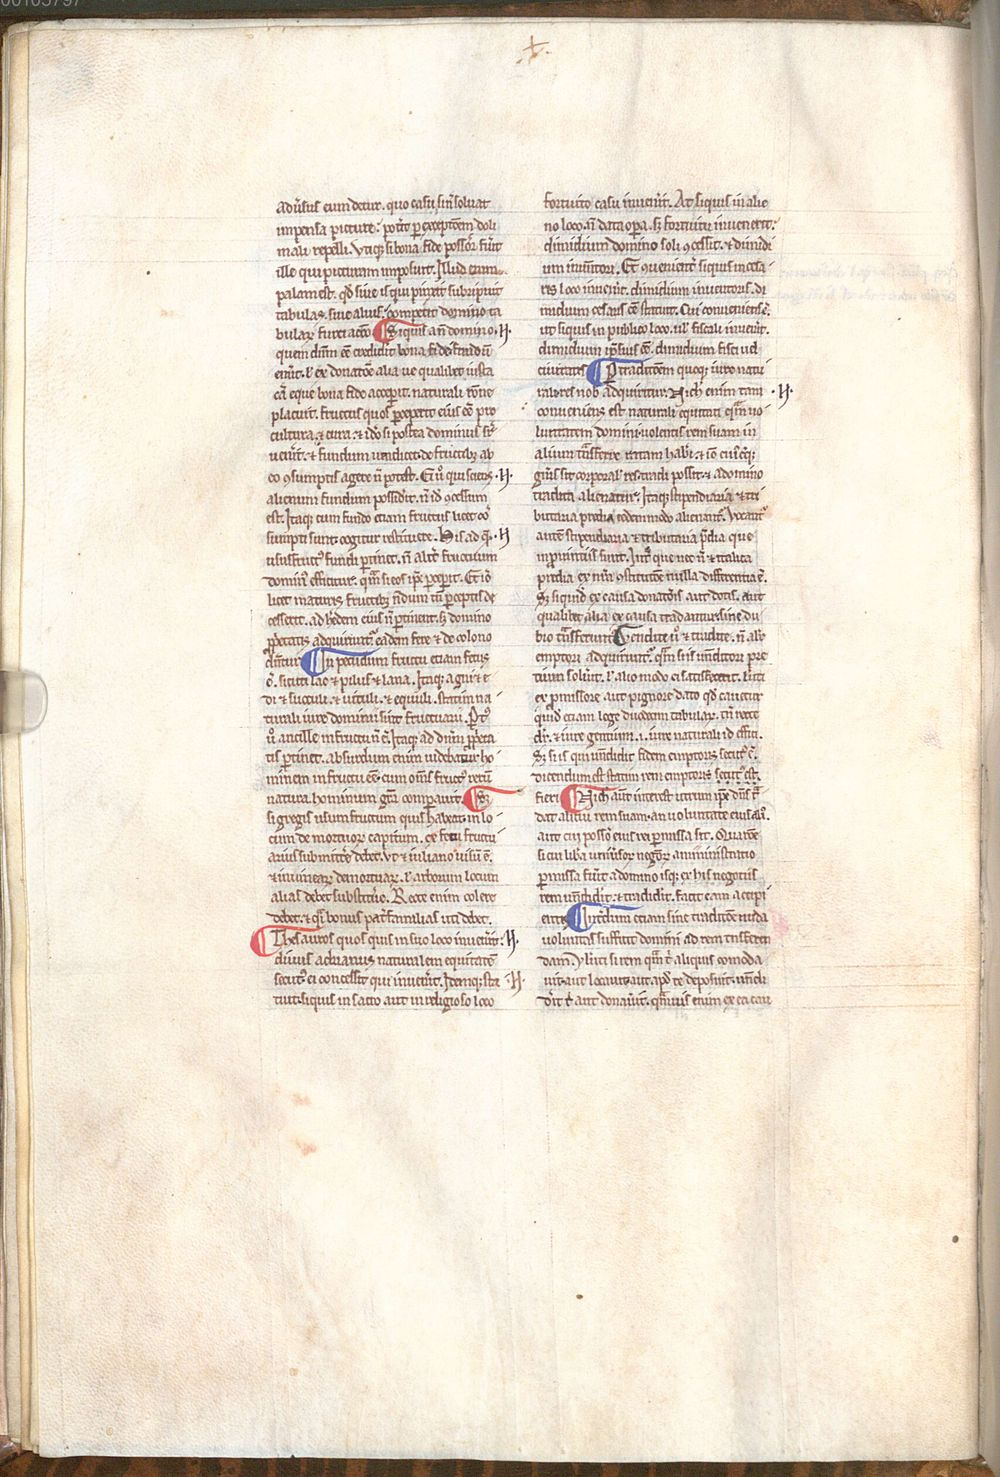 aduersus eum detur. quo casu si non soluat
impensam picture: poterit per exceptionem doli
mali repelli. Utique si bona fide possessor fuerit
ille qui picturam imposuit. Illud enim
palam est. quod siue is qui pinxit subripuit
tabulas. siue alius. competit domino ta
bularum furti actio. Si quis a non domino.
quem dominum esse credidit bona fide fundum
emerit. uel ex donatione alia ue qualibet iusta
causa eque bona fide acceperit. naturali ratione
placuit. fructus quos percepit eius esse pro
cultura. et cura. et ideo si postea dominus super
uenerit. et fundum uendicet. de fructibus ab
eo consumptis agere non potest. Ei uero qui sciens
alienum fundum possederit. non idem concessum
est. Itaque cum fundo etiam fructus licet con
sumpti sunt. cogitur restituere. Is ad quem
ususfructus fundi pertinet. non aliter fructuum
dominus efficitur. quam si eos ipse perceperit. Et ideo
licet maturis fructibus nondum tamen perceptis de
cesserit. ad heredem eius non pertinent. sed domino
proprietatis adquiruntur. eadem fere et de colono
dicuntur. In pecudum fructu etiam fetus
est. sicuti lac et pilus et lana. Itaque agni et e
di et suculi. et uituli. et equuli. statim na
turali iure dominii sunt fructuarii. Partus
uero ancille in fructu non est. Itaque ad dominum proprieta
tis pertinet. absurdum enim uidebatur ho
minem in fructu esse. cum omnes fructus rerum
natura hominum gratia comparauit. Sed
si gregis usum fructum quis habeat. in lo
cum demortuorum capitum. ex fetu fructu
arius submittere debet. ut et iuliano uisum est.
et in uinearum demortuarum. uel arborum locum
alias debet substituere. Recte enim colere
debet. et quasi bonus paterfamilias uti debet.
Thesauros quos quis in suo loco inuenerit.
diuus adrianus naturalem equitatem
secutus ei concessit qui inuenerit. Idemque sta
tuit. si quis in sacro aut in religioso loco
fortuito casu inuenerit. At si quis in alie
no loco. non data opera. sed fortuitu inuenerit.
dimidium domino soli concessit. et dimidi
um inuentori. Et conuenienter si quis in cesa
ris loco inuenerit. dimidium inuentoris. di
midium cesaris esse statuit. Cui conueniens est.
ut si quis in publico loco. uel fiscali inuenerit.
dimidium ipsius esse. dimidium fisci uel
ciuitatis. Per traditionem quoque iure natu
rali res nobis adquiruntur. Nichil enim tam
conueniens est naturali equitati quam uo
luntatem domini uolentis rem suam in
alium transferre ratam haberi. et ideo cuiuscumque
generis sit corporalis res tradi possit. et a domino
tradita alienatur. Itaque stipendiaria et tri
butaria predia eodem modo alienantur. Uocantur
autem stipendiaria et tributaria predia que
in prouinciis sunt. Inter que nec non et italica
predia ex nostra constitutione nulla differentia est.
Sed si quidem ex causa donationis aut dotis. aut
qualibet alia ex causa tradantur. sine du
bio transferuntur. Uendite uero et tradite. non aliter
emptori adquiruntur. quam si is uenditori pre
tium soluerit. uel alio modo ei satisfecerit. ueluti
ex promissore aut pignore dato quod cauetur
quidem etiam lege duodecim tabularum. tamen recte
dicitur. et iure gentium. i. iure naturali id effici.
Sed si is qui uendidit fidem emptoris secutus est.
dicendum est statim rem emptoris
fieri. Nichil autem interest utrum ipse dominus tra
dat alicui rem suam. an uoluntate eius alius.
aut cui possessio eius rei permissa sit. Qua ratione
si cui libera uniuersorum negotiorum amministratio
permissa fuerit a domino. isque ex his negotiis
rem uendiderit. et tradiderit. facit eam accipi
entis. Interdum etiam sine traditione nuda
uoluntas sufficit domini ad rem transferen
dam. Ueluti si rem quam tibi aliquis comoda
uit. aut locauit. aut apud te deposuit. uendi
derit tibi aut donauerit. quamuis enim ex ea cau